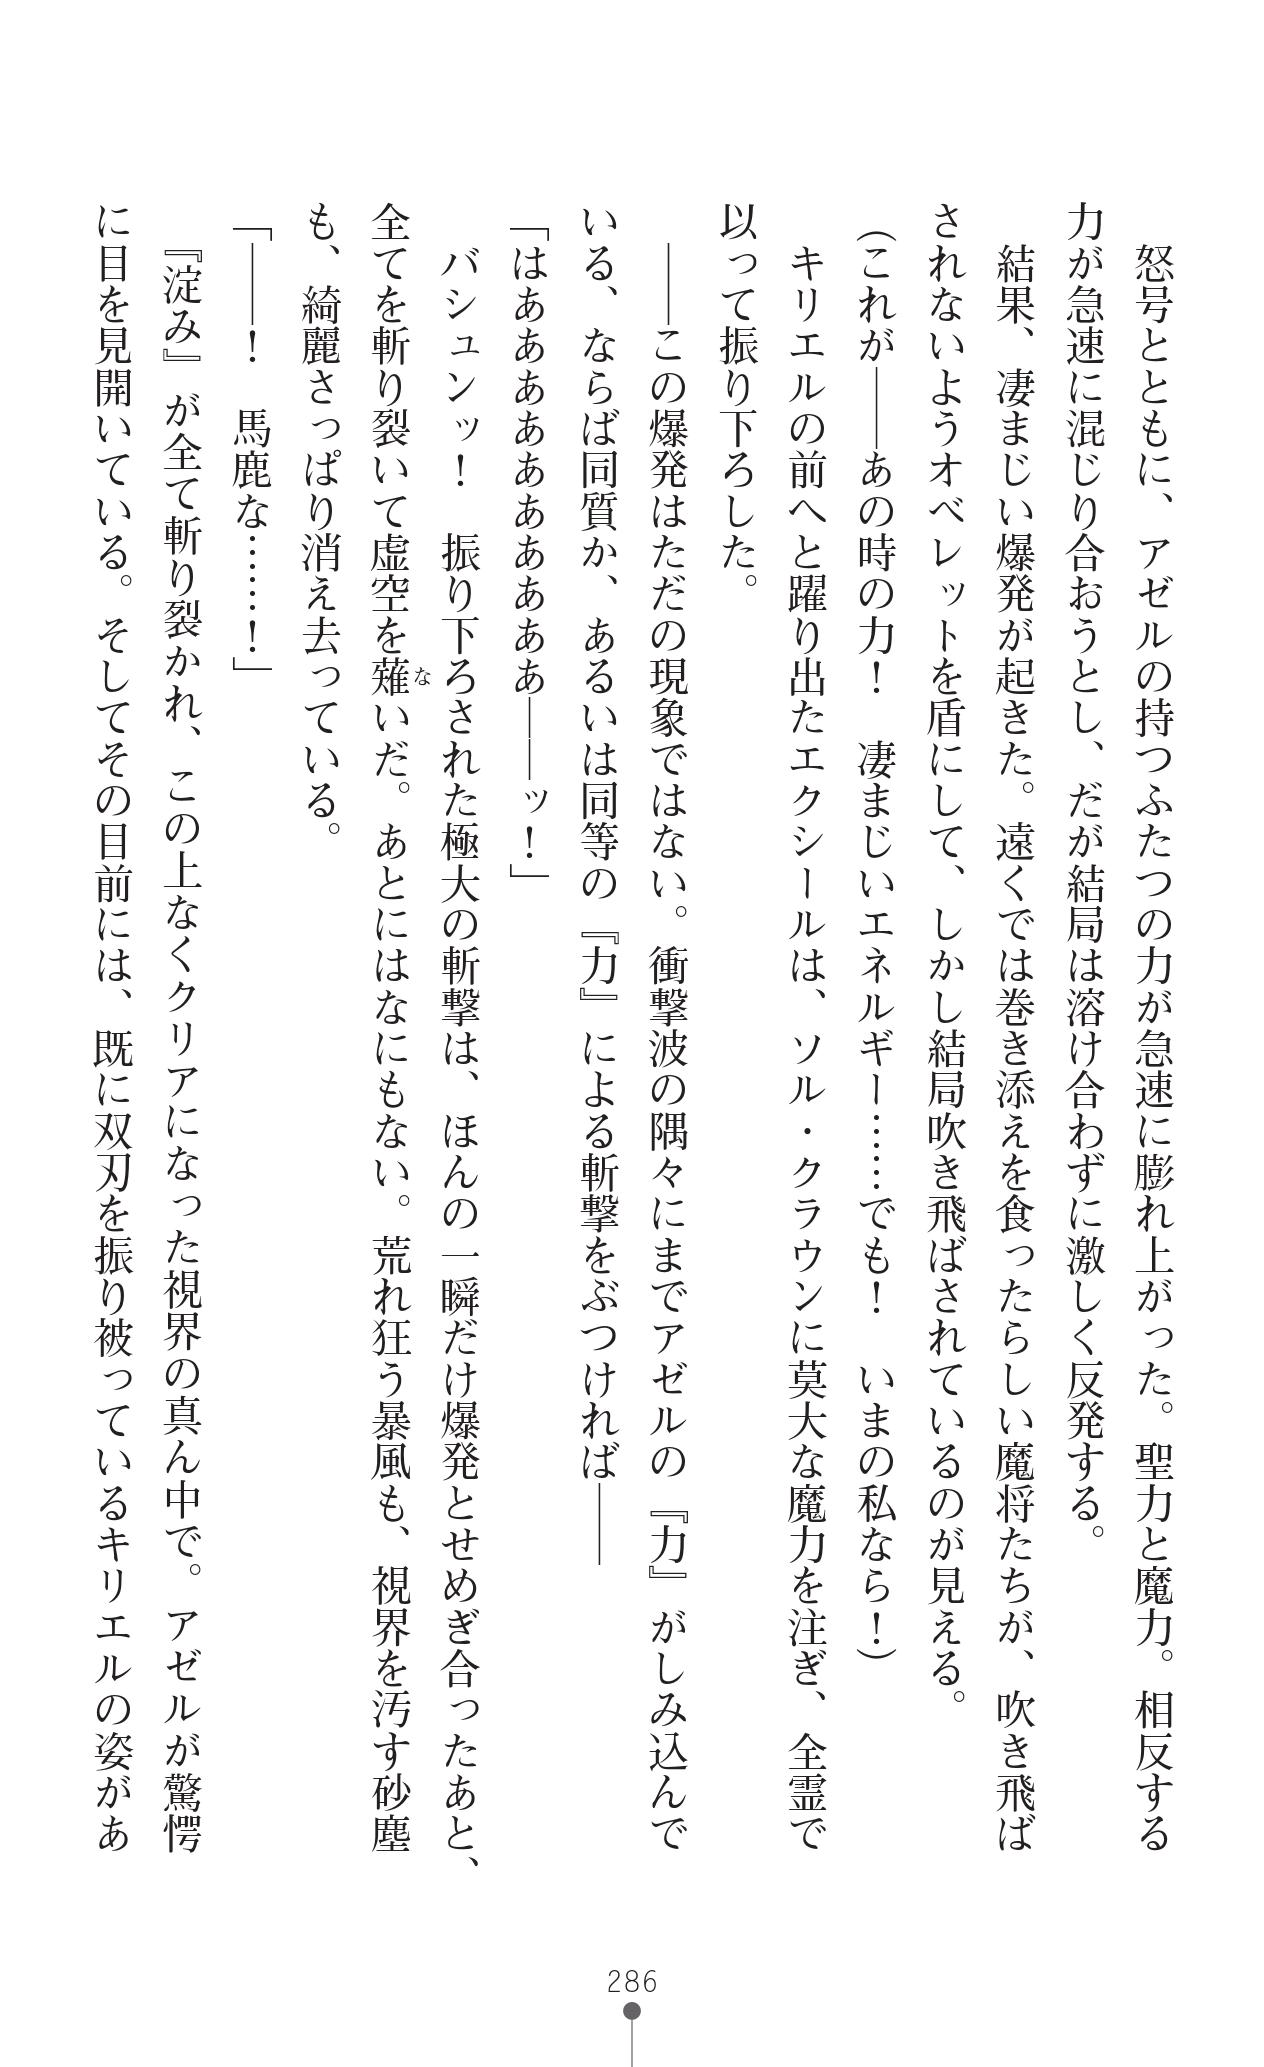 怒号とともに、アゼルの持つふたつの力が急速に膨れ上がった。聖力と魔力。相反する
力が急速に混じり合おうとし、だが結局は溶け合わずに激しく反発する。
結果、凄まじい爆発が起きた。遠くでは巻き添えを食ったらしい魔将たちが、吹き飛ば
されないようオベレットを盾にして、しかし結局吹き飛ばされているのが見える。
（これが――あの時の力！　凄まじいエネルギー……でも！　いまの私なら！）
キリエルの前へと躍り出たエクシールは、ソル・クラウンに莫大な魔力を注ぎ、全霊で
以って振り下ろした。
――この爆発はただの現象ではない。衝撃波の隅々にまでアゼルの『力』がしみ込んで
いる、ならば同質か、あるいは同等の『力』による斬撃をぶつければ――
「はああああああああああ――ッ！」
バシュンッ！　振り下ろされた極大の斬撃は、ほんの一瞬だけ爆発とせめぎ合ったあと、
全てを斬り裂いて虚空を薙いだ。あとにはなにもない。荒れ狂う暴風も、視界を汚す砂塵
な
も、綺麗さっぱり消え去っている。
「――！　馬鹿な……！」
『淀み』が全て斬り裂かれ、この上なくクリアになった視界の真ん中で。アゼルが驚愕
に目を見開いている。そしてその目前には、既に双刃を振り被っているキリエルの姿があ
286